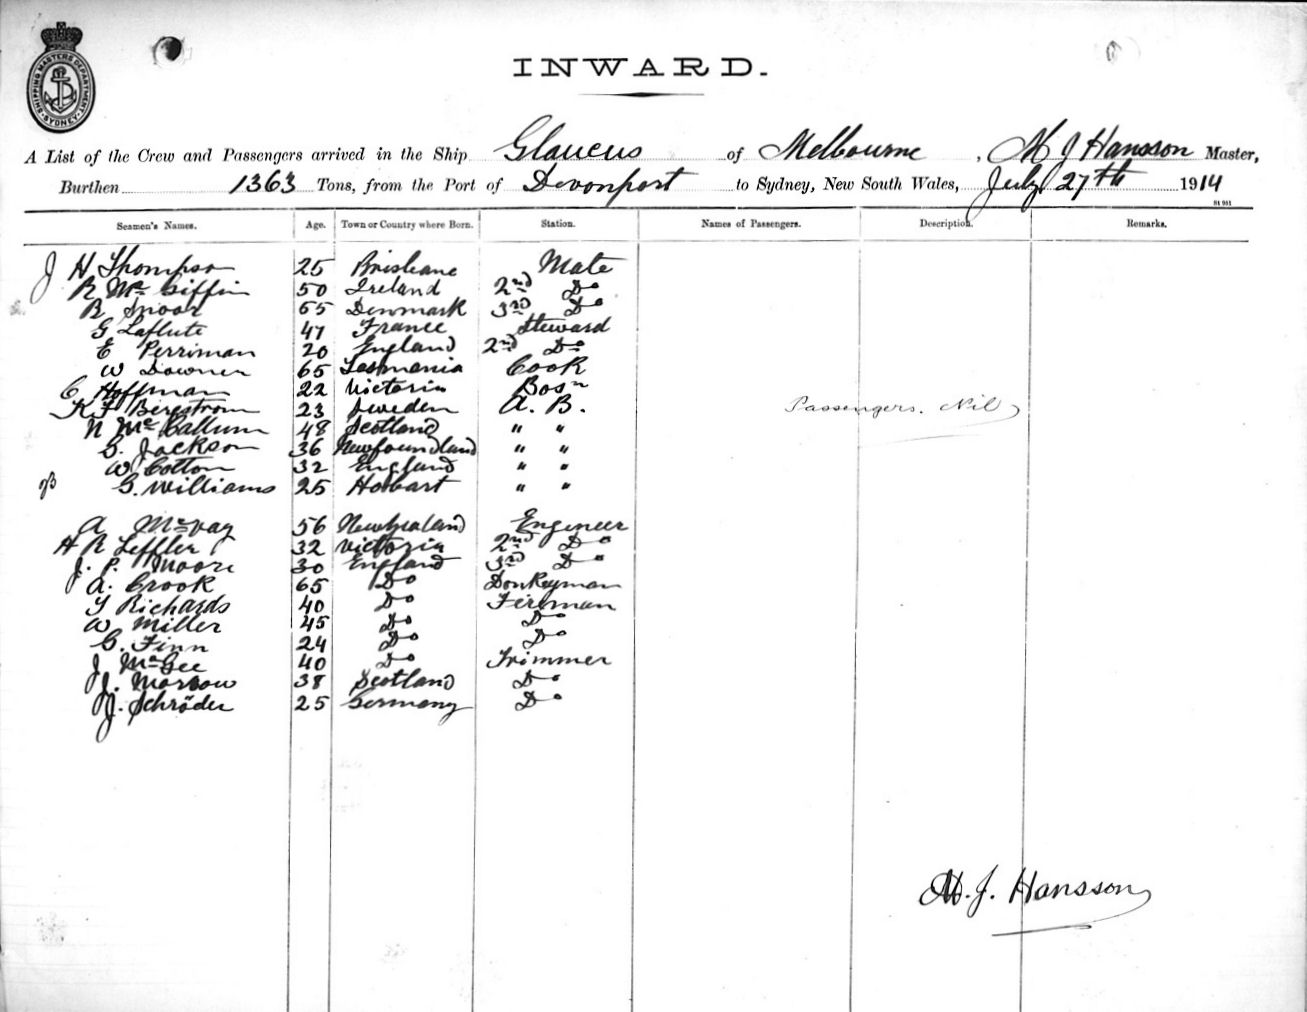 SHIPPING MASTERS DEPARTMENT SYDNEY
INWARD.
A List of the Crew and Passengers arrived in the Ship Glaucus of Melbourne, M J Hansson Master,
Burthen 1363 Tons, from the Port of Devonport to Sydney, New South Wales, July 27th 1914
Seamen's Names. Age. Town or Country where Born. Station. Names of Passengers. Description. Remarks.
J H Thompson 25 Brisbane Mate
R McGiffin 50 Ireland 2nd Do
B 65 Denmark 3rd Do
G Laflute 47 France Steward
E Perriman 20 England 2nd Do
W Downer 65 Tasmania Cook
C Hoffman 22 Victoria Bosn
K F Bergstrom 23 Sweden A. B. Passengers. Nil
N McCallum 48 Scotland " "
G. Jackson 36 Newfoundland " "
W Cotton 32 England " "
G. Williams 25 Hobart " "
A McVay 56 New Zealand Engineer
H R Leffler 32 Victoria 2nd Do
J. P. Moore 30 England 3rd Do
A. Crook 65 Do Donkeyman
T Richards 40 Do Fireman
W Miller 45 Do Do
C. Finn 24 Do Do
J McGee 40 Do Trimmer
J. Morrow 38 Scotland Do
J. Schröder 25 Germany Do
M. J. Hansson